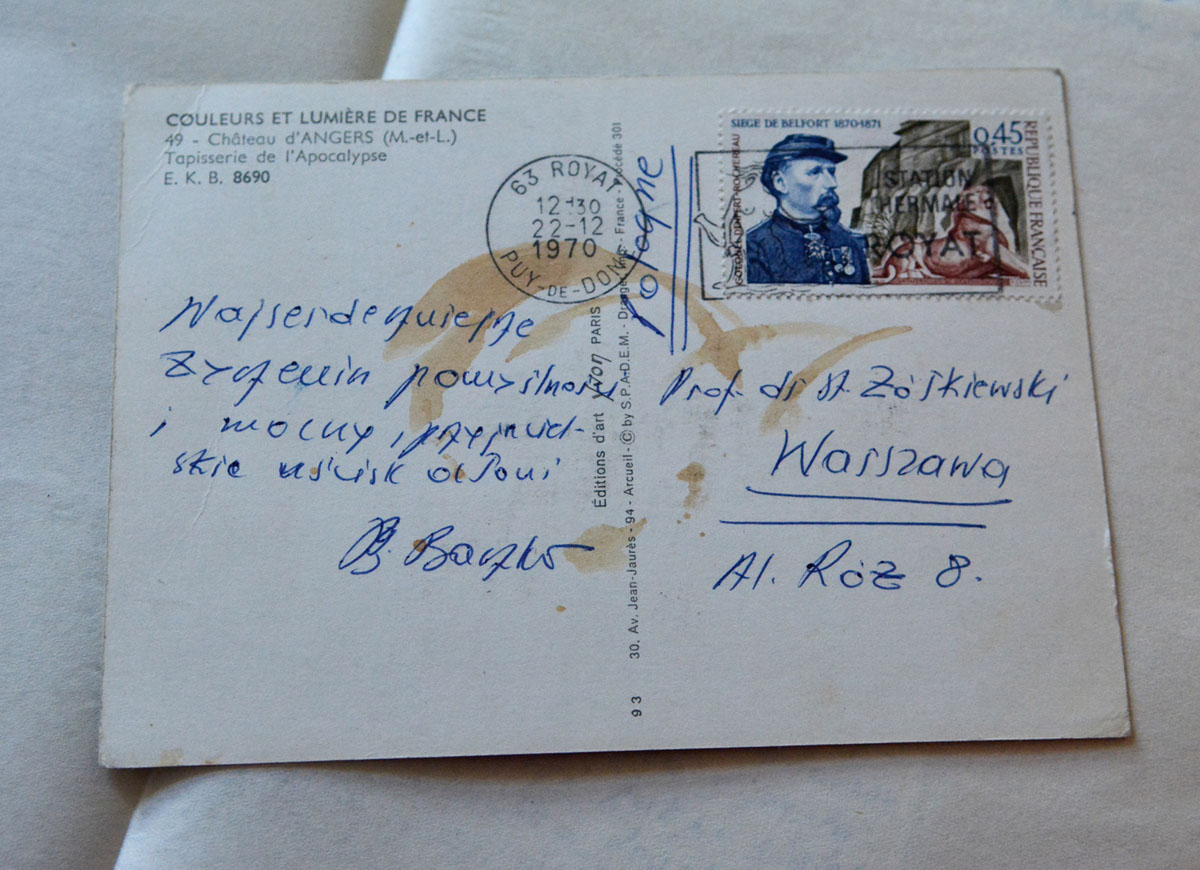 COULEURS ET LUMIÈRE DE FRANCE
49 - Château d'ANGERS (M.-et-L.)
Tapisserie de l'Apocalypse
E. K. B. 8690
63 ROYAT
12 30
22-12
1970
PUY-DE-DOME
SIEGE DE BELFORT 1870-1871
0,45
POSTES
RÉPUBLIQUE FRANÇAISE
COLONEL DENFERT-ROCHEREAU
STATION
THERMALE
ROYAT
Pologne
Najserdeczniejsze
życzenia pomyślności
i mocny, przyjaciel-
skie uścisk dłoni
B. Baczko
Éditions d'art yvon PARIS
30, Av. Jean-Jaurès - 94 - Arcueil - © by S.P.A.D.E.M. - Imp. - France - Procédé 301
93
Prof. dr St. Żółkiewski
Warszawa
Al. Róż 8.